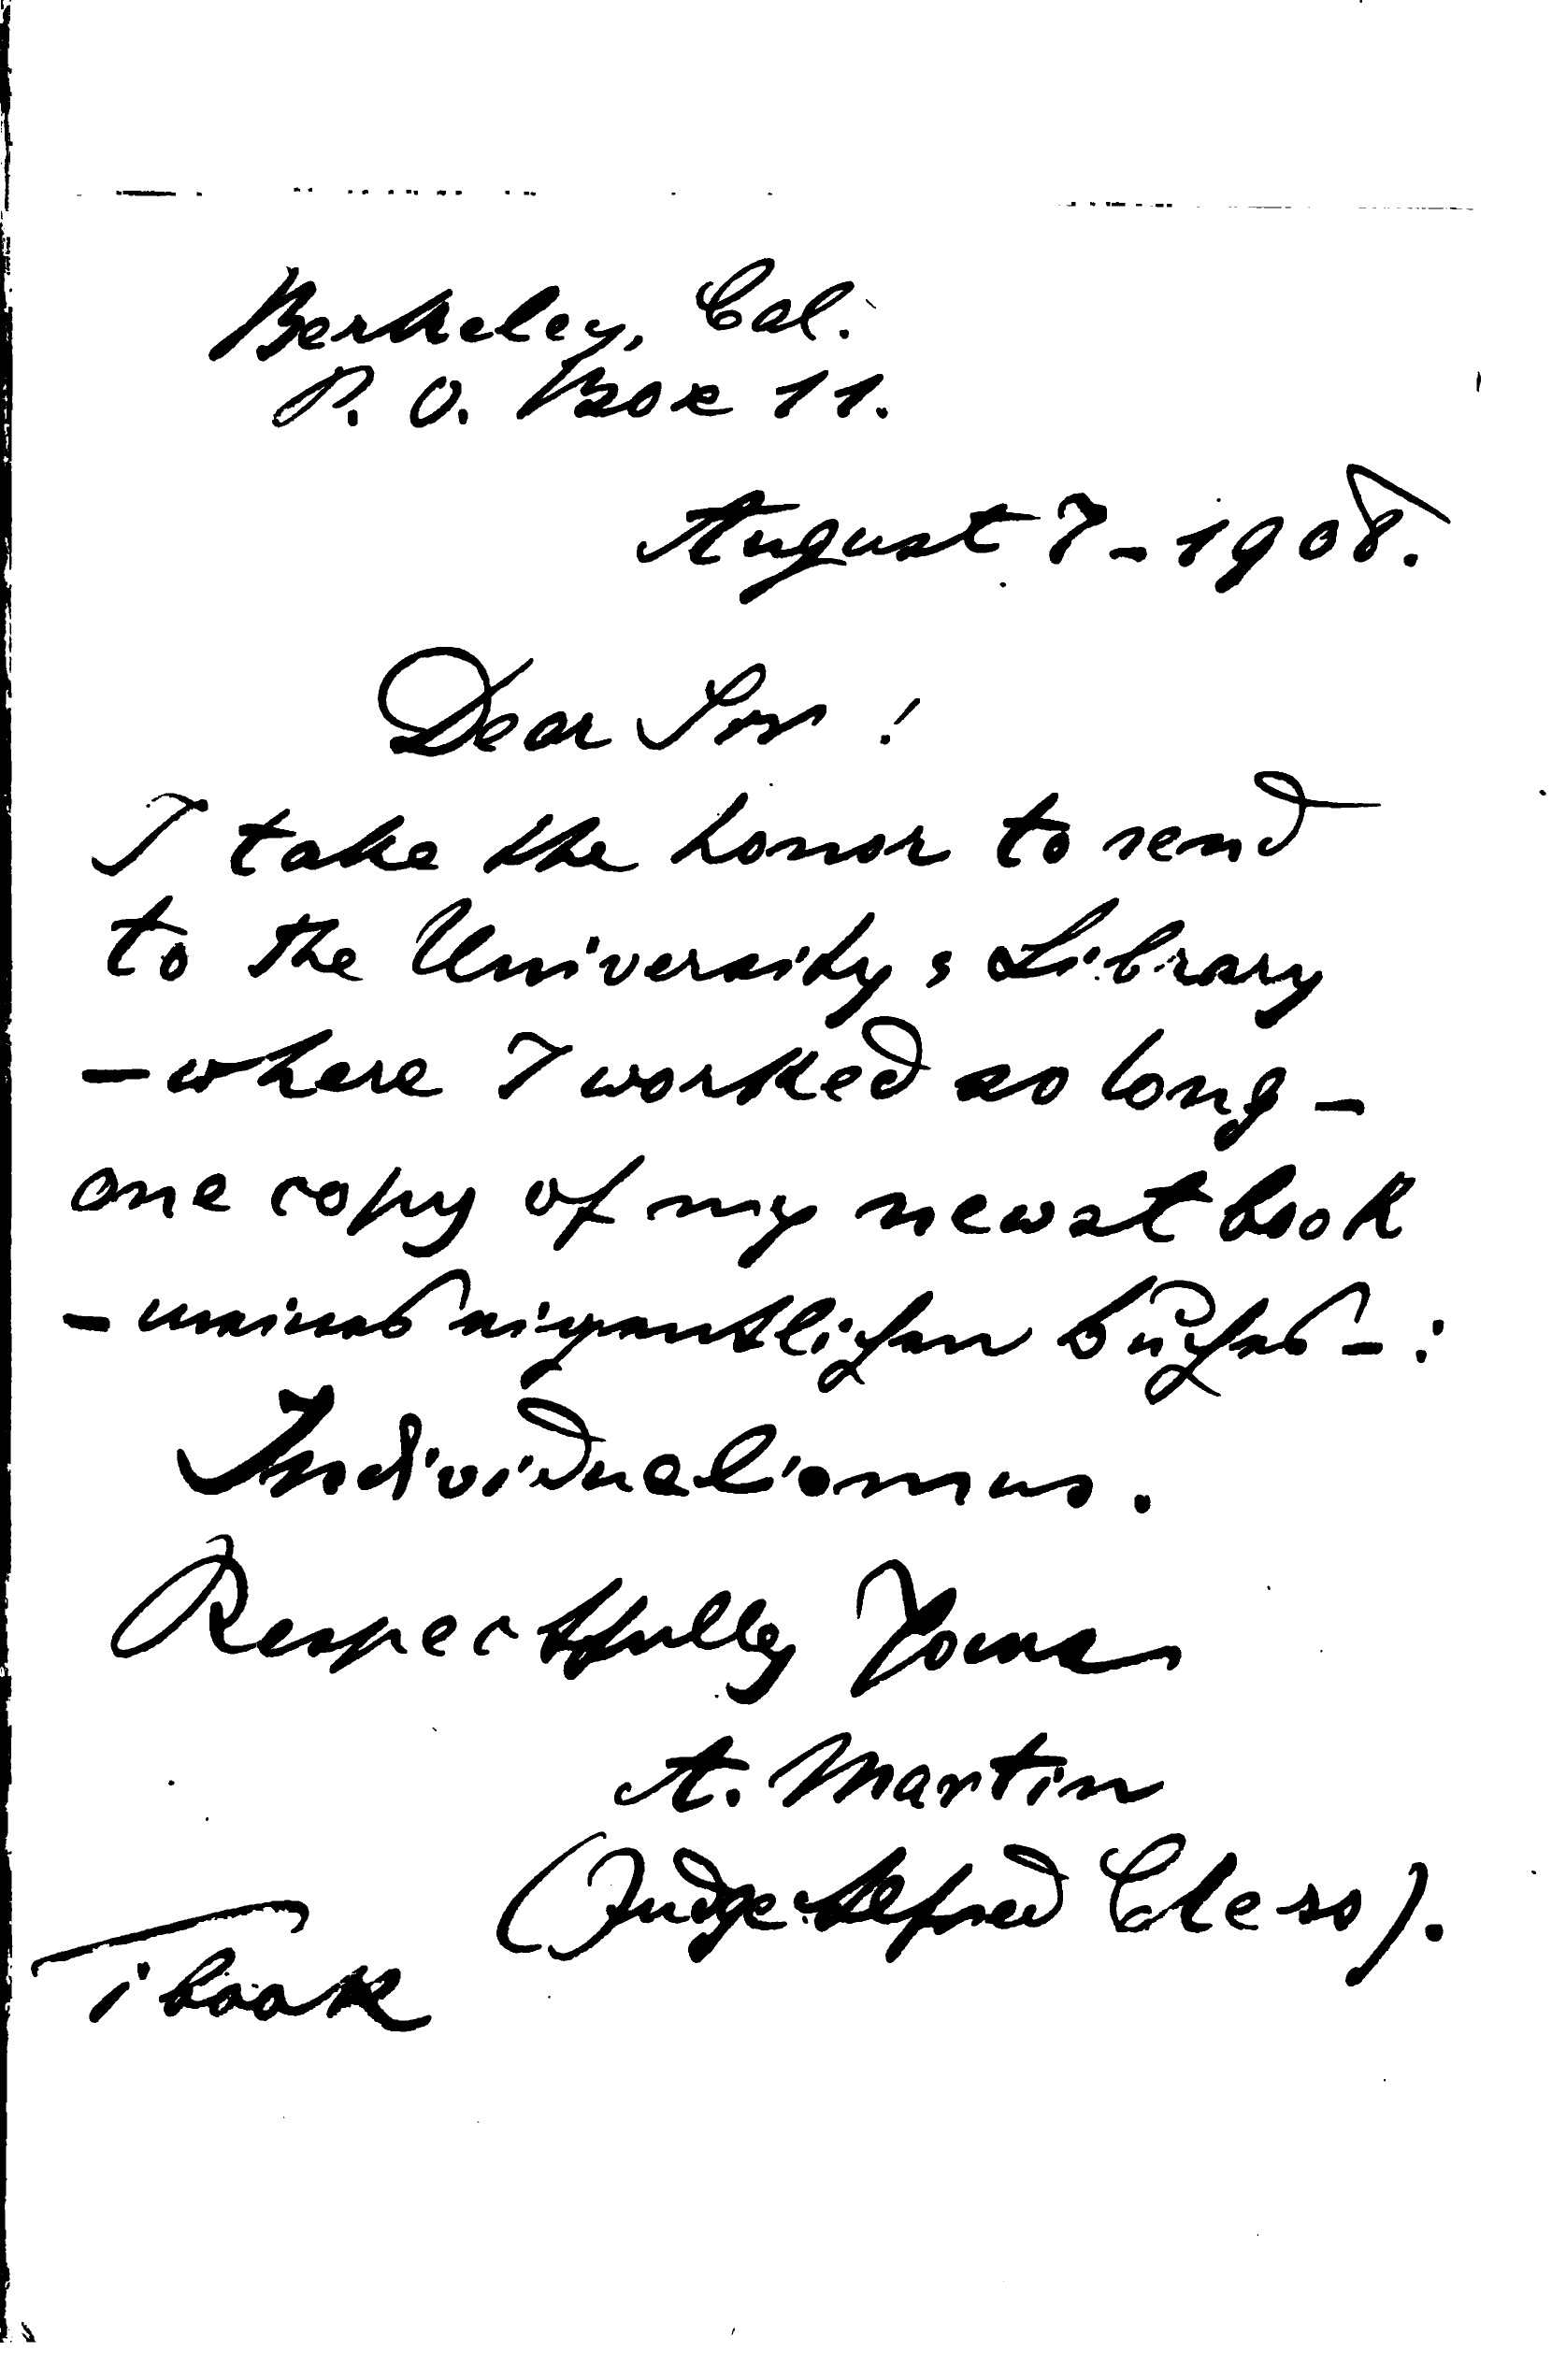 Berkeley, Cal.
P. O. Box 11.
August 7 - 1908.
Dear Sir!
I take the honor to send
to the University's Library
- where I worked so long -
one copy of my newst book
- meines eigentlichen Buches - :
Individualismus.
Respectfully Yours
A. Martin
(Judge Alfred Cless).
1 book